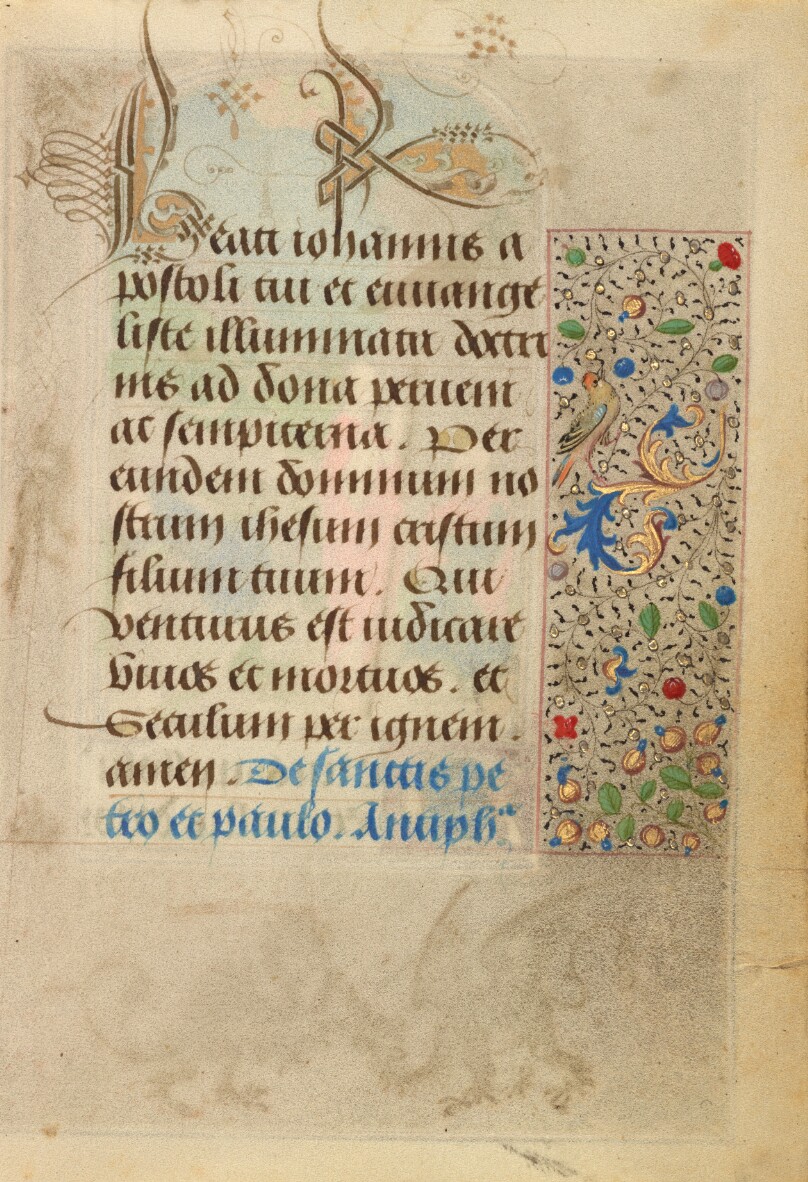 Beati iohannis a
postoli tui et euuange
liste illuminata doctri
nis ad dona perueni
at sempiterna. Per
eundem dominum no
strum ihesum cristum
filium tuum. Qui
venturus est iudicare
viuos et mortuos. et
Seculum per ignem.
amen. De sanctis pe
tro et paulo. Antiphª